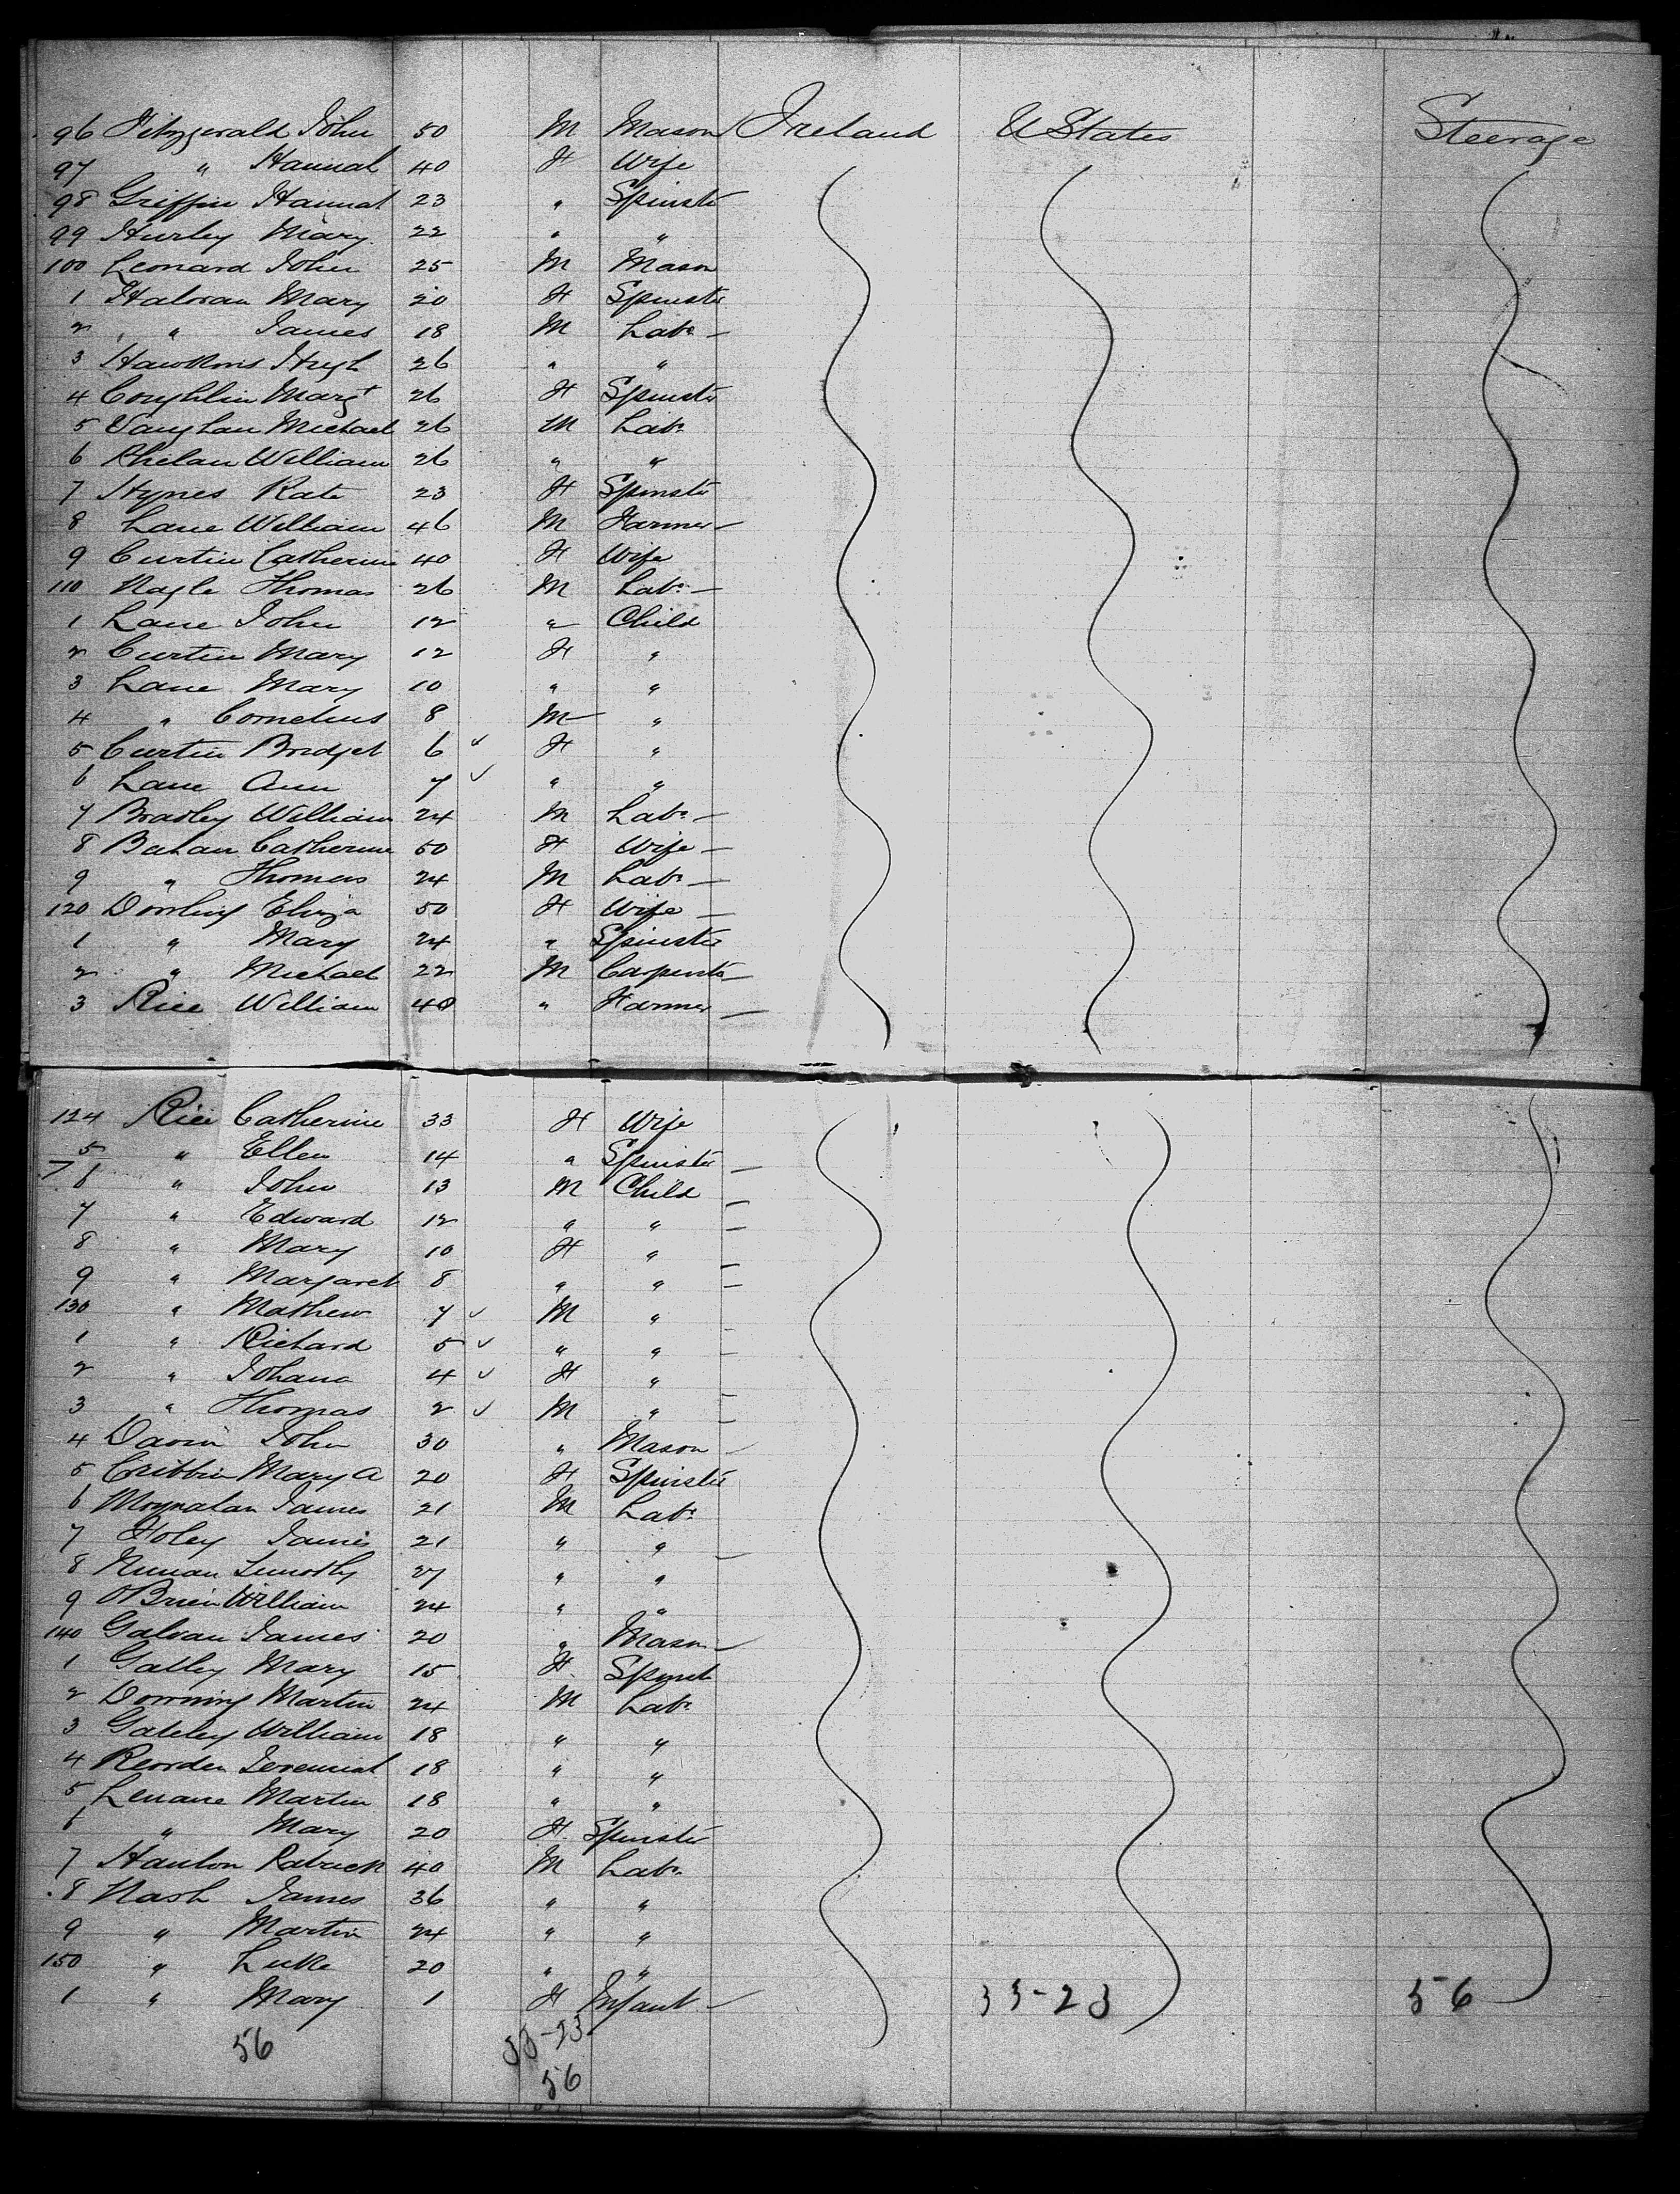 96 Fitzgerald John 50 M Mason Ireland U States Steerage
97 " Hannah 40 F Wife
98 Griffin Hannah 23 " Spinster
99 Hurley Mary 22 " "
100 Leonard John 25 M Mason
1 Haloran Mary 20 F Spinster
2 " James 18 M Labr
3 Hawkins Hugh 26 " "
4 Coughlin Margt 26 F Spinster
5 Vaughan Michael 26 M Labr
6 Phelan William 26 " "
7 Hynes Kate 23 F Spinster
8 Lane William 46 M Farmer
9 Curtin Catherine 40 F Wife
110 Nagle Thomas 26 M Labr
1 Lane John 12 " Child
2 Curtin Mary 12 F "
3 Lane Mary 10 " "
4 " Cornelius 8 M "
5 Curtin Bridget 6 ✓ F "
6 Lane Ann 7 ✓ " "
7 Bradley William 24 M Labr
8 Bahan Catherine 50 F Wife
9 " Thomas 24 M Labr
120 Dowling Eliza 50 F Wife
1 " Mary 24 " Spinster
2 " Michael 22 M Carpenter
3 Rice William 40 " Farmer
124 Rice Catherine 33 F Wife
5 " Ellen 14 " Spinster
6 " John 13 M Child
7 " Edward 12 " "
8 " Mary 10 F "
9 " Margaret 8 " "
130 " Mathew 7 ✓ M "
1 " Richard 5 ✓ " "
2 " Johana 4 ✓ F "
3 " Thomas 2 ✓ M "
4 Davin John 30 " Mason
5 Cribbin Mary A 20 F Spinster
6 Moynahan James 21 M Labr
7 Foley James 21 " "
8 Nunan Timothy 27 " "
9 OBrien William 24 " "
140 Galvan James 20 " Mason
1 Gatley Mary 15 F Spinst
2 Downing Martin 24 M Labr
3 Gateley William 18 " "
4 Reorden Jeremiah 18 " "
5 Lenane Martin 18 " "
6 " Mary 20 F Spinster
7 Hanlon Patrick 40 M Labr
8 Nash James 36 " "
9 " Martin 24 " "
150 " Luke 20 " "
1 " Mary 1 F Infant 33-23 56
56 33-23
56